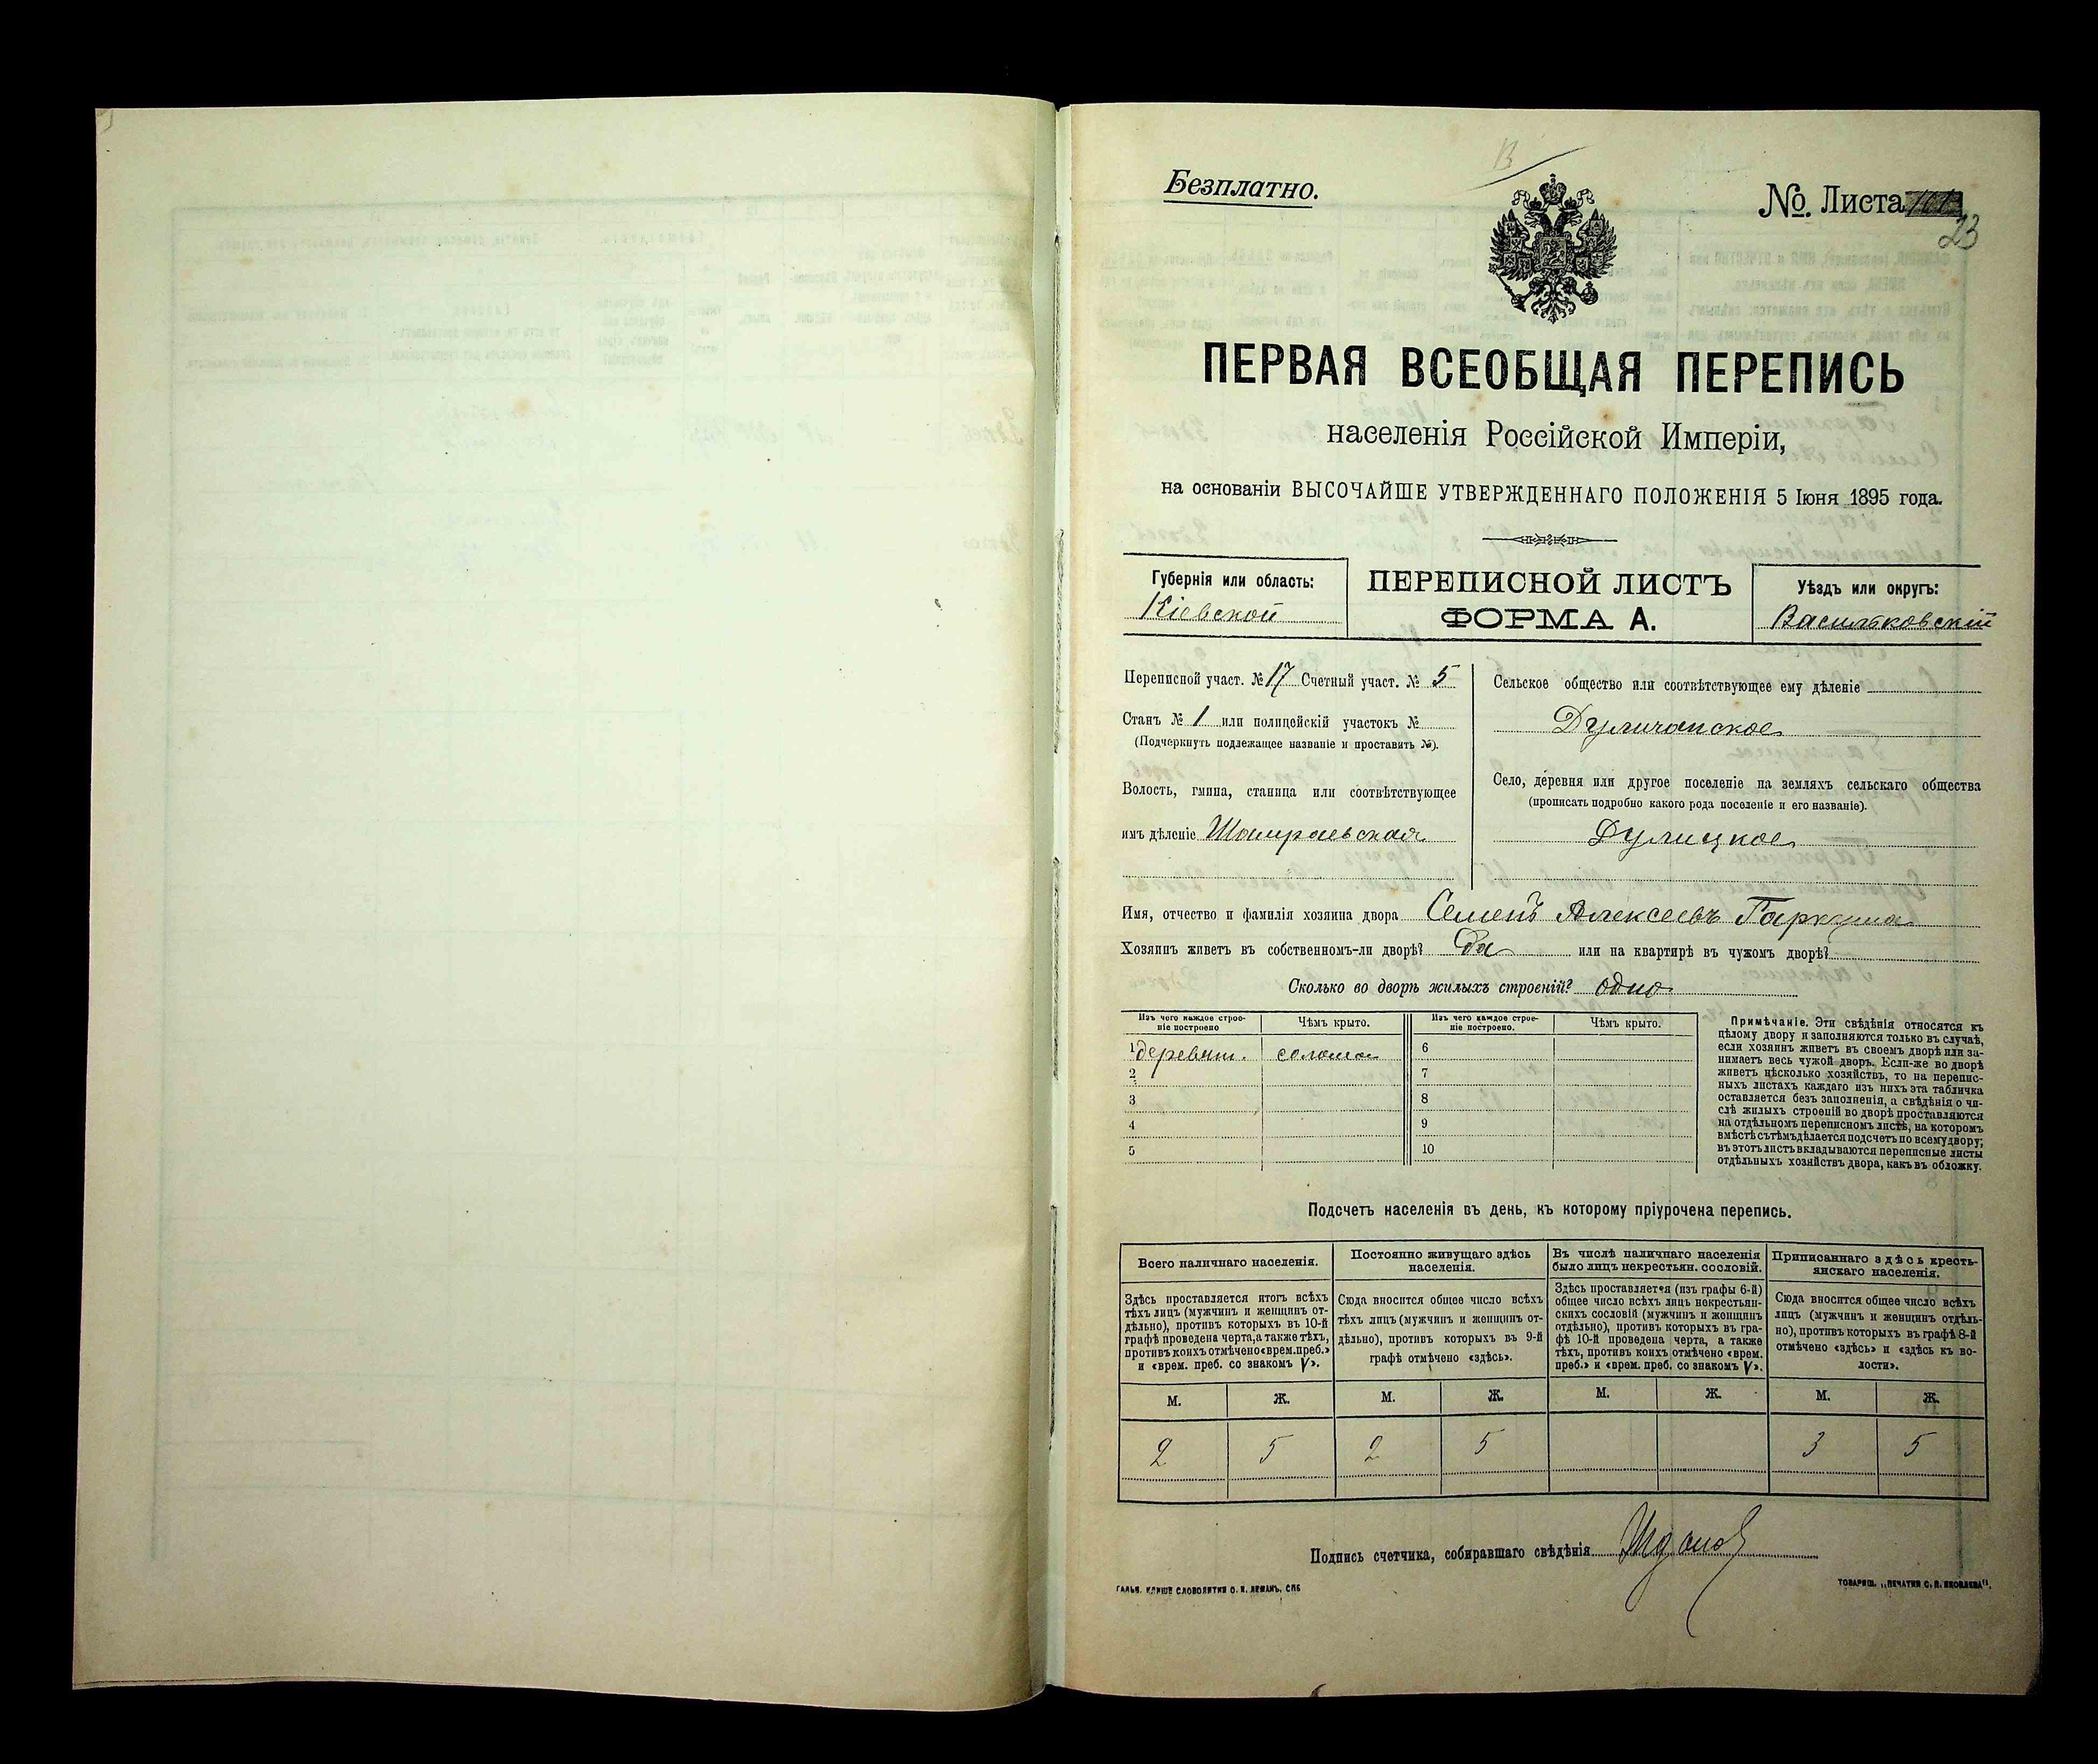 Безплатно.
№ Листа
23
ПЕРВАЯ ВСЕОБЩАЯ ПЕРЕПИСЬ
населенія Россійской Имперіи,
на основаніи ВЫСОЧАЙШЕ УТВЕРЖДЕННАГО ПОЛОЖЕНІЯ 5 Іюня 1895 года.
Губернія или область:
Кіевской
ПЕРЕПИСНОЙ ЛИСТЪ
ФОРМА А.
Уѣздъ или округъ:
Васильковскій
Переписной участ. № 17 Счетный участ. № 5
Станъ № 1 или полицейскій участокъ №
(Подчеркнуть подлежащее названіе и проставить №).
Волость, гмина, станица или соотвѣтствующее
имъ дѣленіе Шамраевская
Сельское общество или соотвѣтствующее ему дѣленіе
Дуличанское
Село, деревня или другое поселеніе на земляхъ сельскаго общества
(прописать подробно какого рода поселеніе и его названіе).
Дулицкое
Имя, отчество и фамилія хозяина двора Семенъ Алексеевъ Гаркуша
Хозяинъ живетъ въ собственномъ-ли дворѣ? Да или на квартирѣ въ чужомъ дворѣ?
Сколько во дворѣ жилыхъ строеній? одно
Изъ чего каждое строе-
ніе построено
Чѣмъ крыто.
Изъ чего каждое строе-
ніе построено.
Чѣмъ крыто.
1 деревян. солома
2
3
4
5
6
7
8
9
10
Примѣчаніе. Эти свѣдѣнія относятся къ
цѣлому двору и заполняются только въ случаѣ,
если хозяинъ живетъ въ своемъ дворѣ или за-
нимаетъ весь чужой дворъ. Если-же во дворѣ
живетъ нѣсколько хозяйствъ, то на перепис-
ныхъ листахъ каждаго изъ нихъ эта табличка
оставляется безъ заполненія, а свѣдѣнія о чи-
слѣ жилыхъ строеній во дворѣ проставляются
на отдѣльномъ переписномъ листѣ, на которомъ
вмѣстѣ съ тѣмъ дѣлается подсчетъ по всему двору;
въ этотъ листъ вкладываются переписные листы
отдѣльныхъ хозяйствъ двора, какъ въ обложку.
Подсчетъ населенія въ день, къ которому пріурочена перепись.
Всего наличнаго населенія.
Здѣсь проставляется итогъ всѣхъ
тѣхъ лицъ (мужчинъ и женщинъ от-
дѣльно), противъ которыхъ въ 10-й
графѣ проведена черта, а также тѣхъ,
противъ коихъ отмѣчено «врем. преб.»
и «врем. преб. со знакомъ V».
Постоянно живущаго здѣсь
населенія.
Сюда вносится общее число всѣхъ
тѣхъ лицъ (мужчинъ и женщинъ от-
дѣльно), противъ которыхъ въ 9-й
графѣ отмѣчено «здѣсь».
Въ числѣ наличнаго населенія
было лицъ некрестьян. сословій.
Здѣсь проставляется (изъ графы 6-й)
общее число всѣхъ лицъ некрестьян-
скихъ сословій (мужчинъ и женщинъ
отдѣльно), противъ которыхъ въ гра-
фѣ 10-й проведена черта, а также
тѣхъ, противъ коихъ отмѣчено «врем.
преб.» и «врем. преб. со знакомъ V».
Приписаннаго здѣсь кресть-
янскаго населенія.
Сюда вносится общее число всѣхъ
лицъ (мужчинъ и женщинъ отдѣль-
но), противъ которыхъ въ графѣ 8-й
отмѣчено «здѣсь» и «здѣсь къ во-
лости».
М. Ж. М. Ж. М. Ж. М. Ж.
2 5 2 5 3 5
Подпись счетчика, собиравшаго свѣдѣнія
ГАЛЬВ. КЛИШЕ СЛОВОЛИТНИ О. И. ЛЕМАНЪ, СПБ
ТОВАРИЩ. „ПЕЧАТНЯ С. П. ЯКОВЛЕВА“.